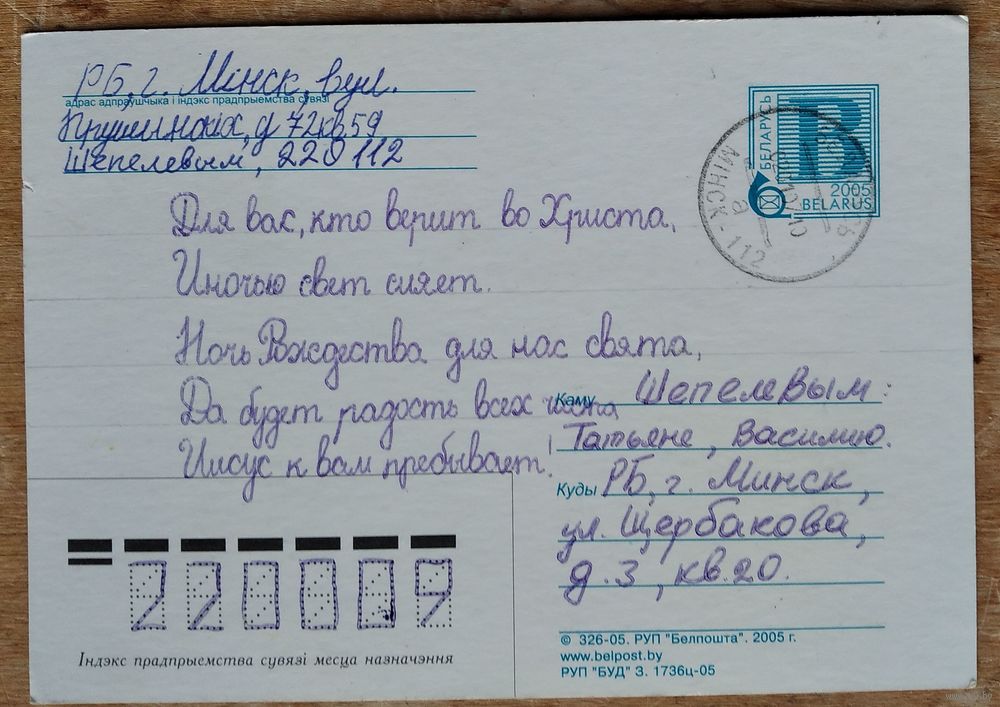 РБ, г. Мінск, вул.
адрас адпраўшчыка і індэкс прадпрыемства сувязі
д 72 кв 59
Шепелевым, 220112
БЕЛАРУСЬ
B
2005
BELARUS
МІНСК - 112
а
Для вас, кто верит во Христа,
И ночью свет сияет.
Ночь Рождества для нас свята,
Да будет радость всех чиста
Иисус к вам пребывает!
Каму Шепелевым:
Татьяне, Василию.
Куды РБ, г. Минск,
ул. Щербакова,
д. 3, кв. 20.
220009
Індэкс прадпрыемства сувязі месца назначэння
© 326-05. РУП "Белпошта". 2005 г.
www.belpost.by
РУП "БУД" З. 1736ц-05